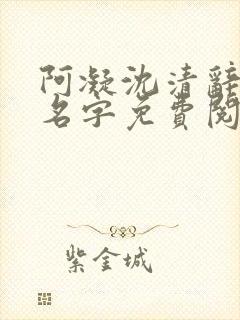 阿凝沈清辭
名字免費閱
紫金城